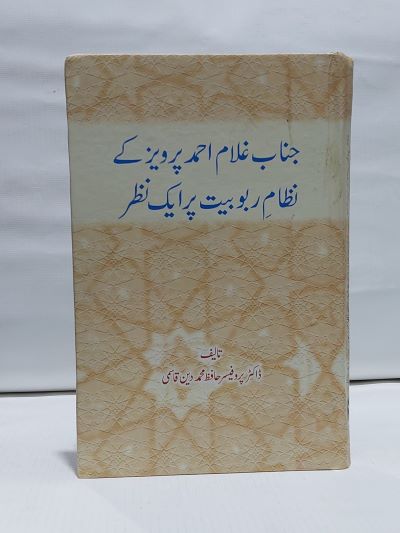 جناب غلام احمد پرویز کے
نظامِ ربوبیت پر ایک نظر
تالیف
ڈاکٹر پروفیسر حافظ محمد دین قاسمی